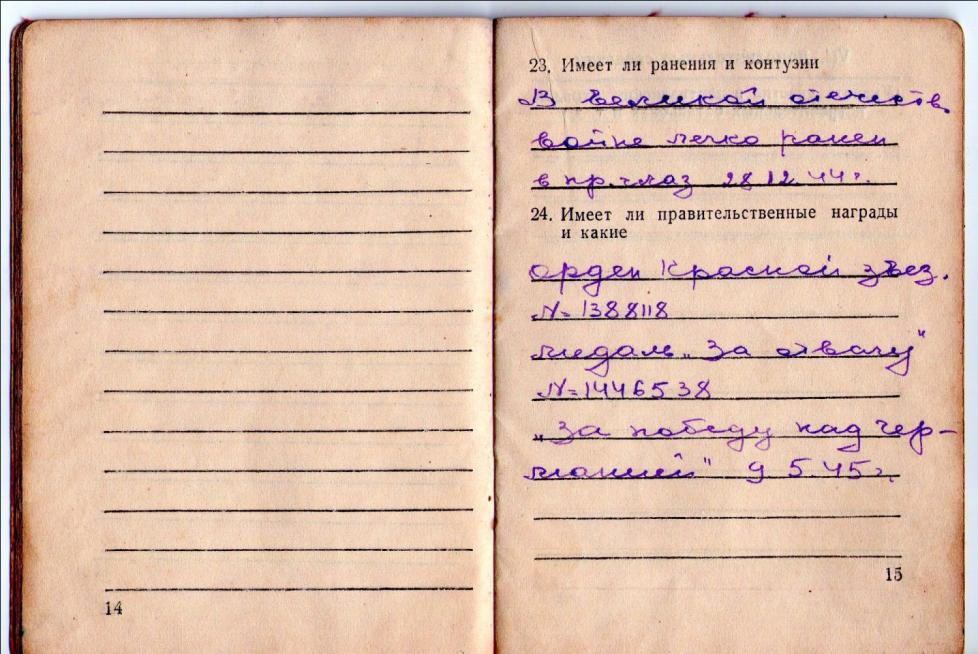 23. Имеет ли ранения и контузии
В великой отечеств.
войне легко ранен
в пр. глаз 28 12. 44 г.
24. Имеет ли правительственные награды
и какие
орден Красной звез.
№ 1388118
медаль „За отвагу"
№ 1446538
„За победу над Гер-
манией" 9 5.45 г.
14
15